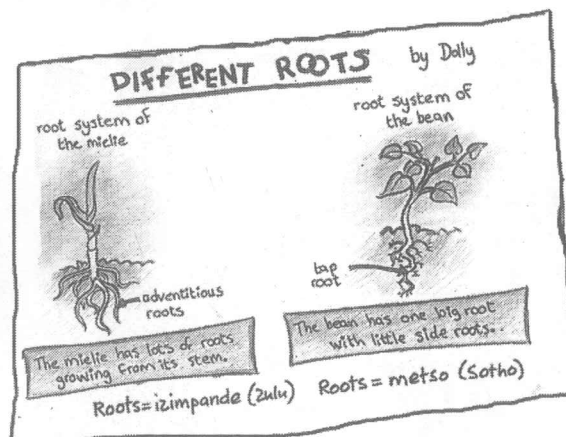 DIFFERENT ROOTS by Dolly
root system of
the mielie
adventitious
roots
The mielie has lots of roots
growing from its stem.
root system of
the bean
tap
root
The bean has one big root
with little side roots..
Roots=izimpande (Zulu) Roots=metso (Sotho)